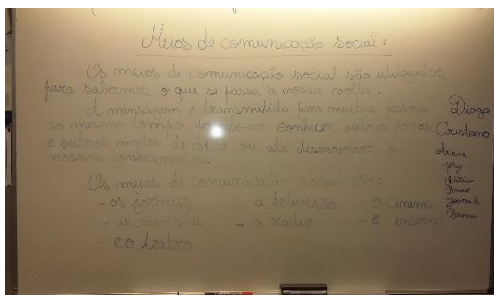 Meios de comunicação social:
Os meios de comunicação social são utilizados
para sabermos o que se passa à nossa volta.
A mensagem é transmitida para muitas pessoas
ao mesmo tempo, conhecer outros povos
e outros modos de vida ou até desenvolver os
nossos conhecimentos.
Os meios de comunicação social são:
- os jornais a televisão - o cinema
- as revistas - a radio - e
- e o teatro
Diogo
Cristiano
Ariana
Bruno
Joana